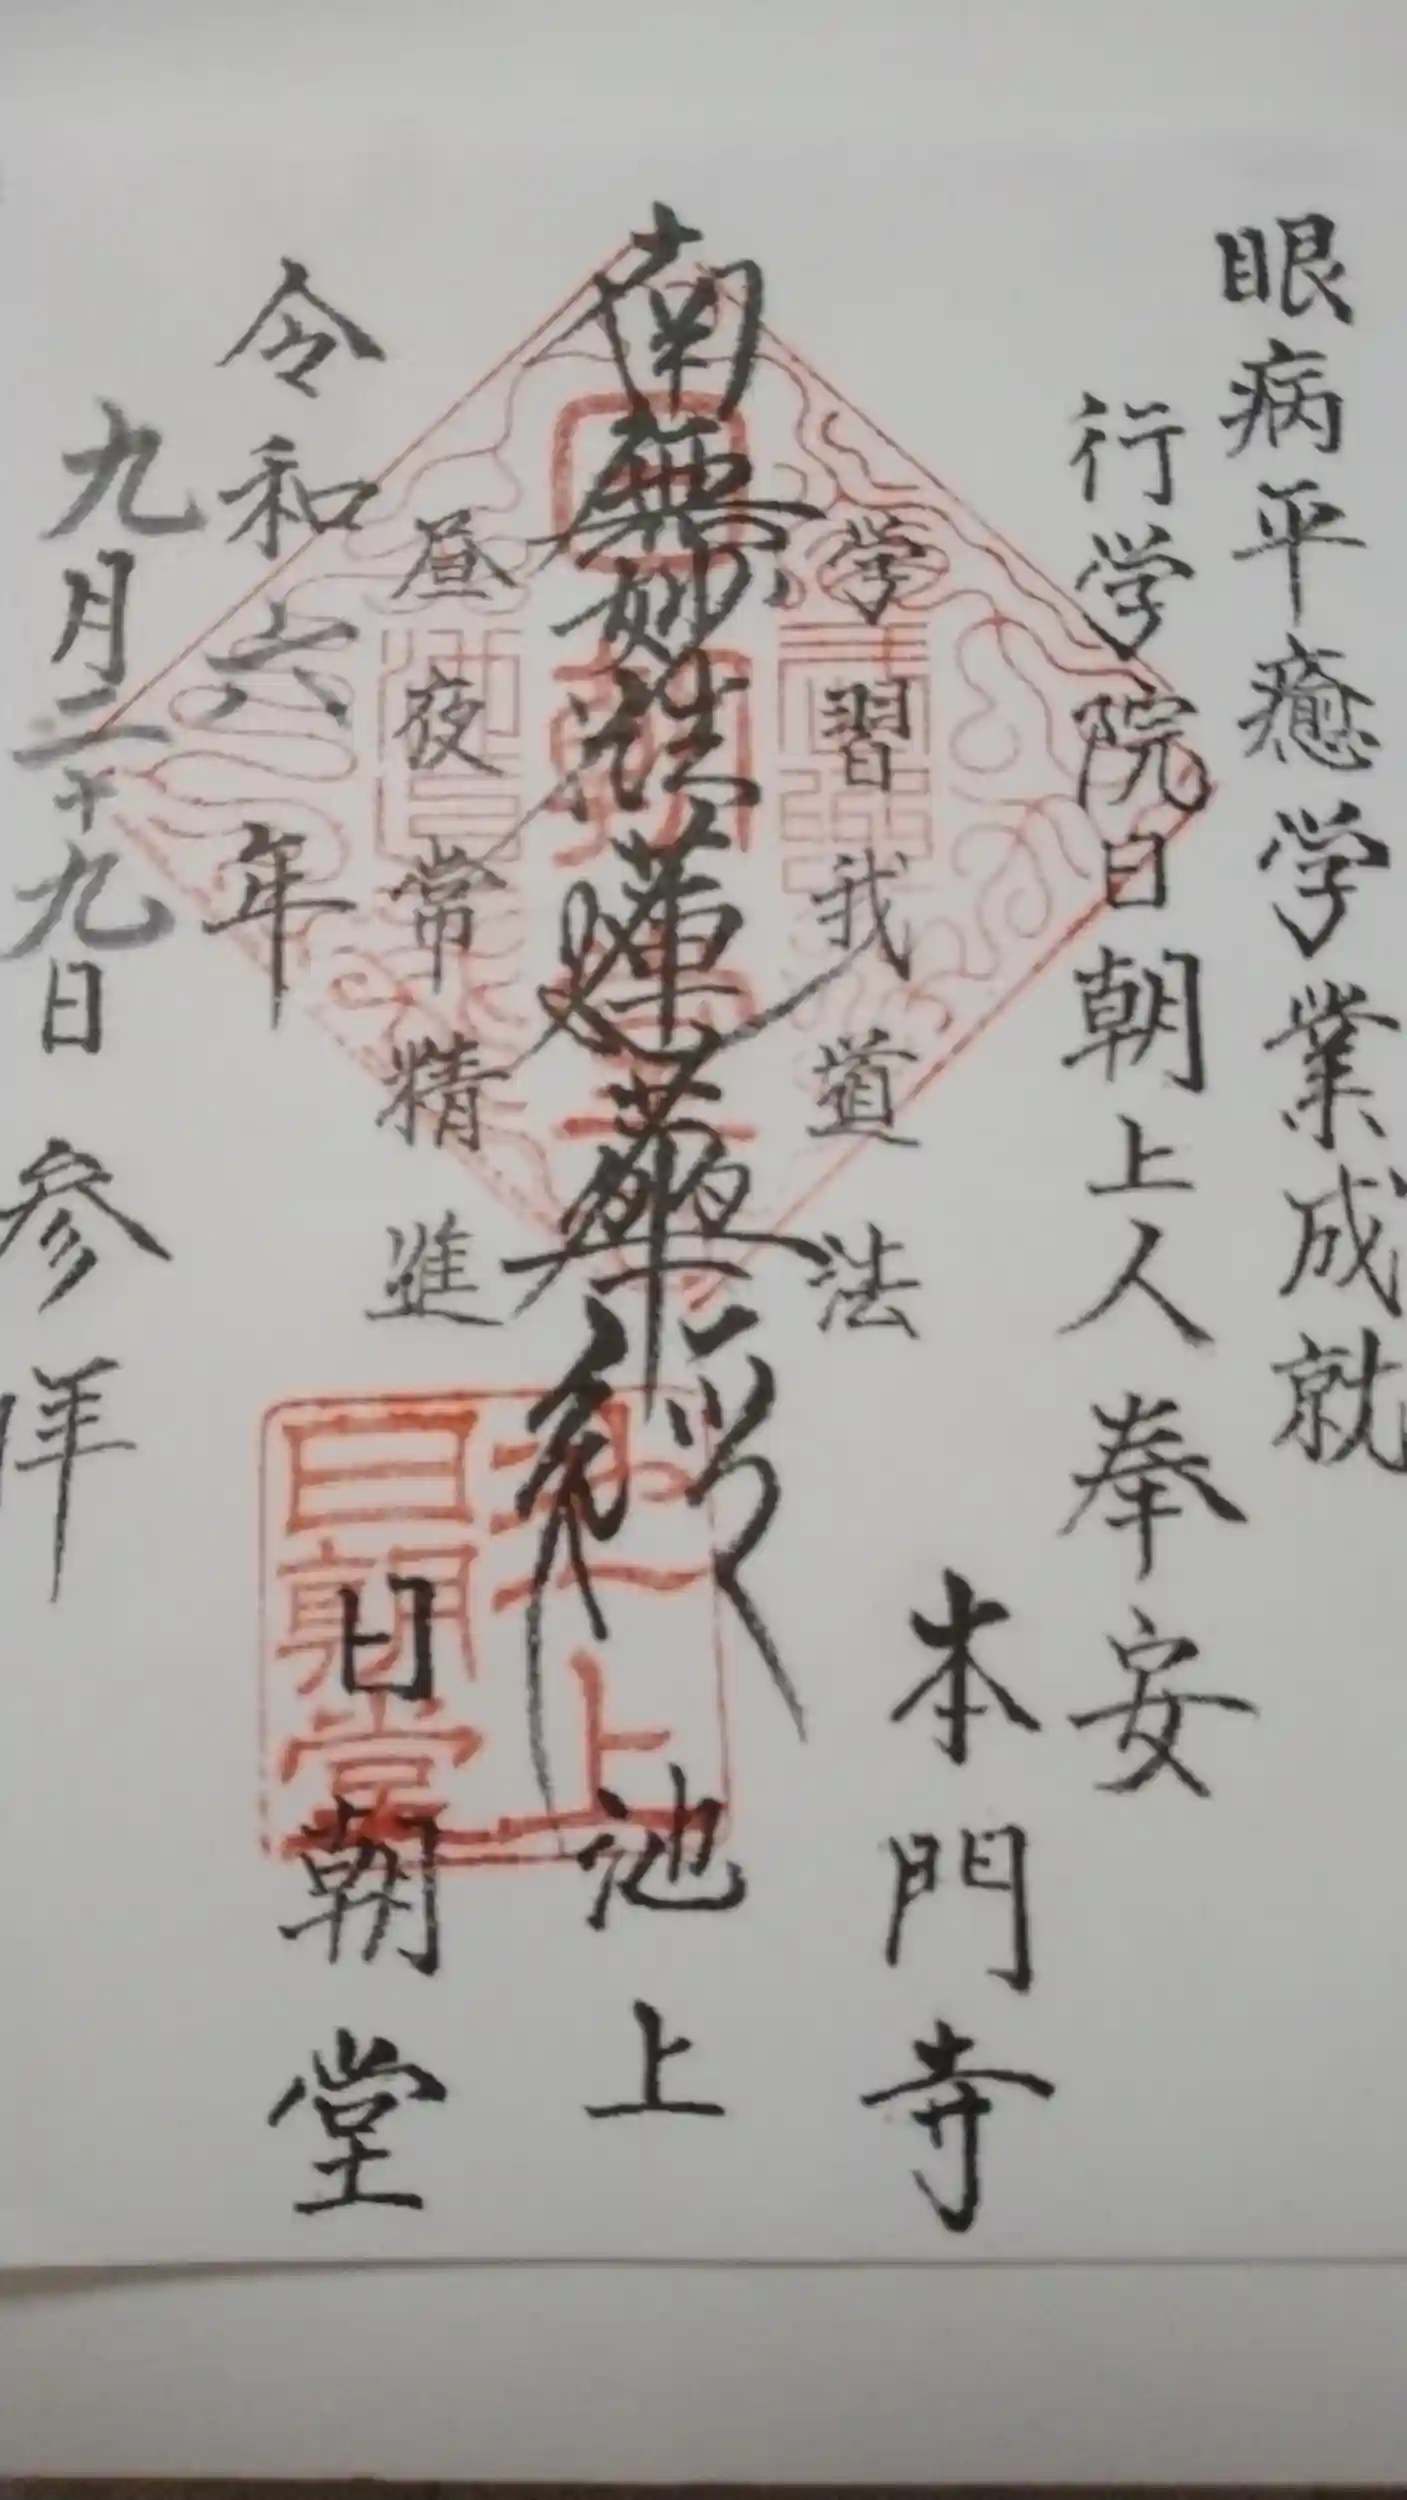 眼病平癒学業成就
行学院日朝上人奉安
本門寺
学習我道法
南無妙法蓮華経
池上
昼夜常精進
日朝堂
令和六年
九月二十九日参拝
池上
日朝堂